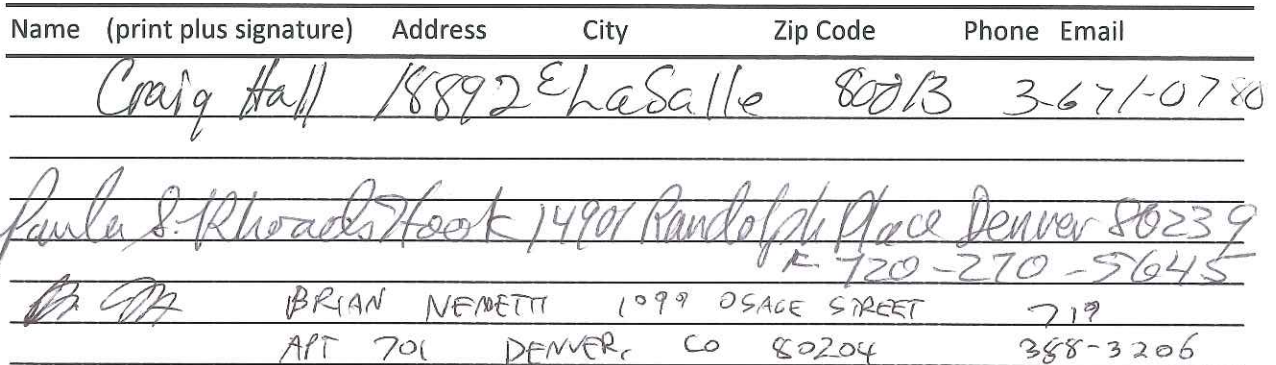 Name (print plus signature) Address City Zip Code Phone Email
Craig Hall 18892 E LaSalle 80013 3-671-0780
Paula S. Rhoads Hook 14901 Randolph Place Denver 80239
720-270-5645
BRIAN NEMETTI 1099 OSAGE STREET 719
APT 701 DENVER, CO 80204 388-3206